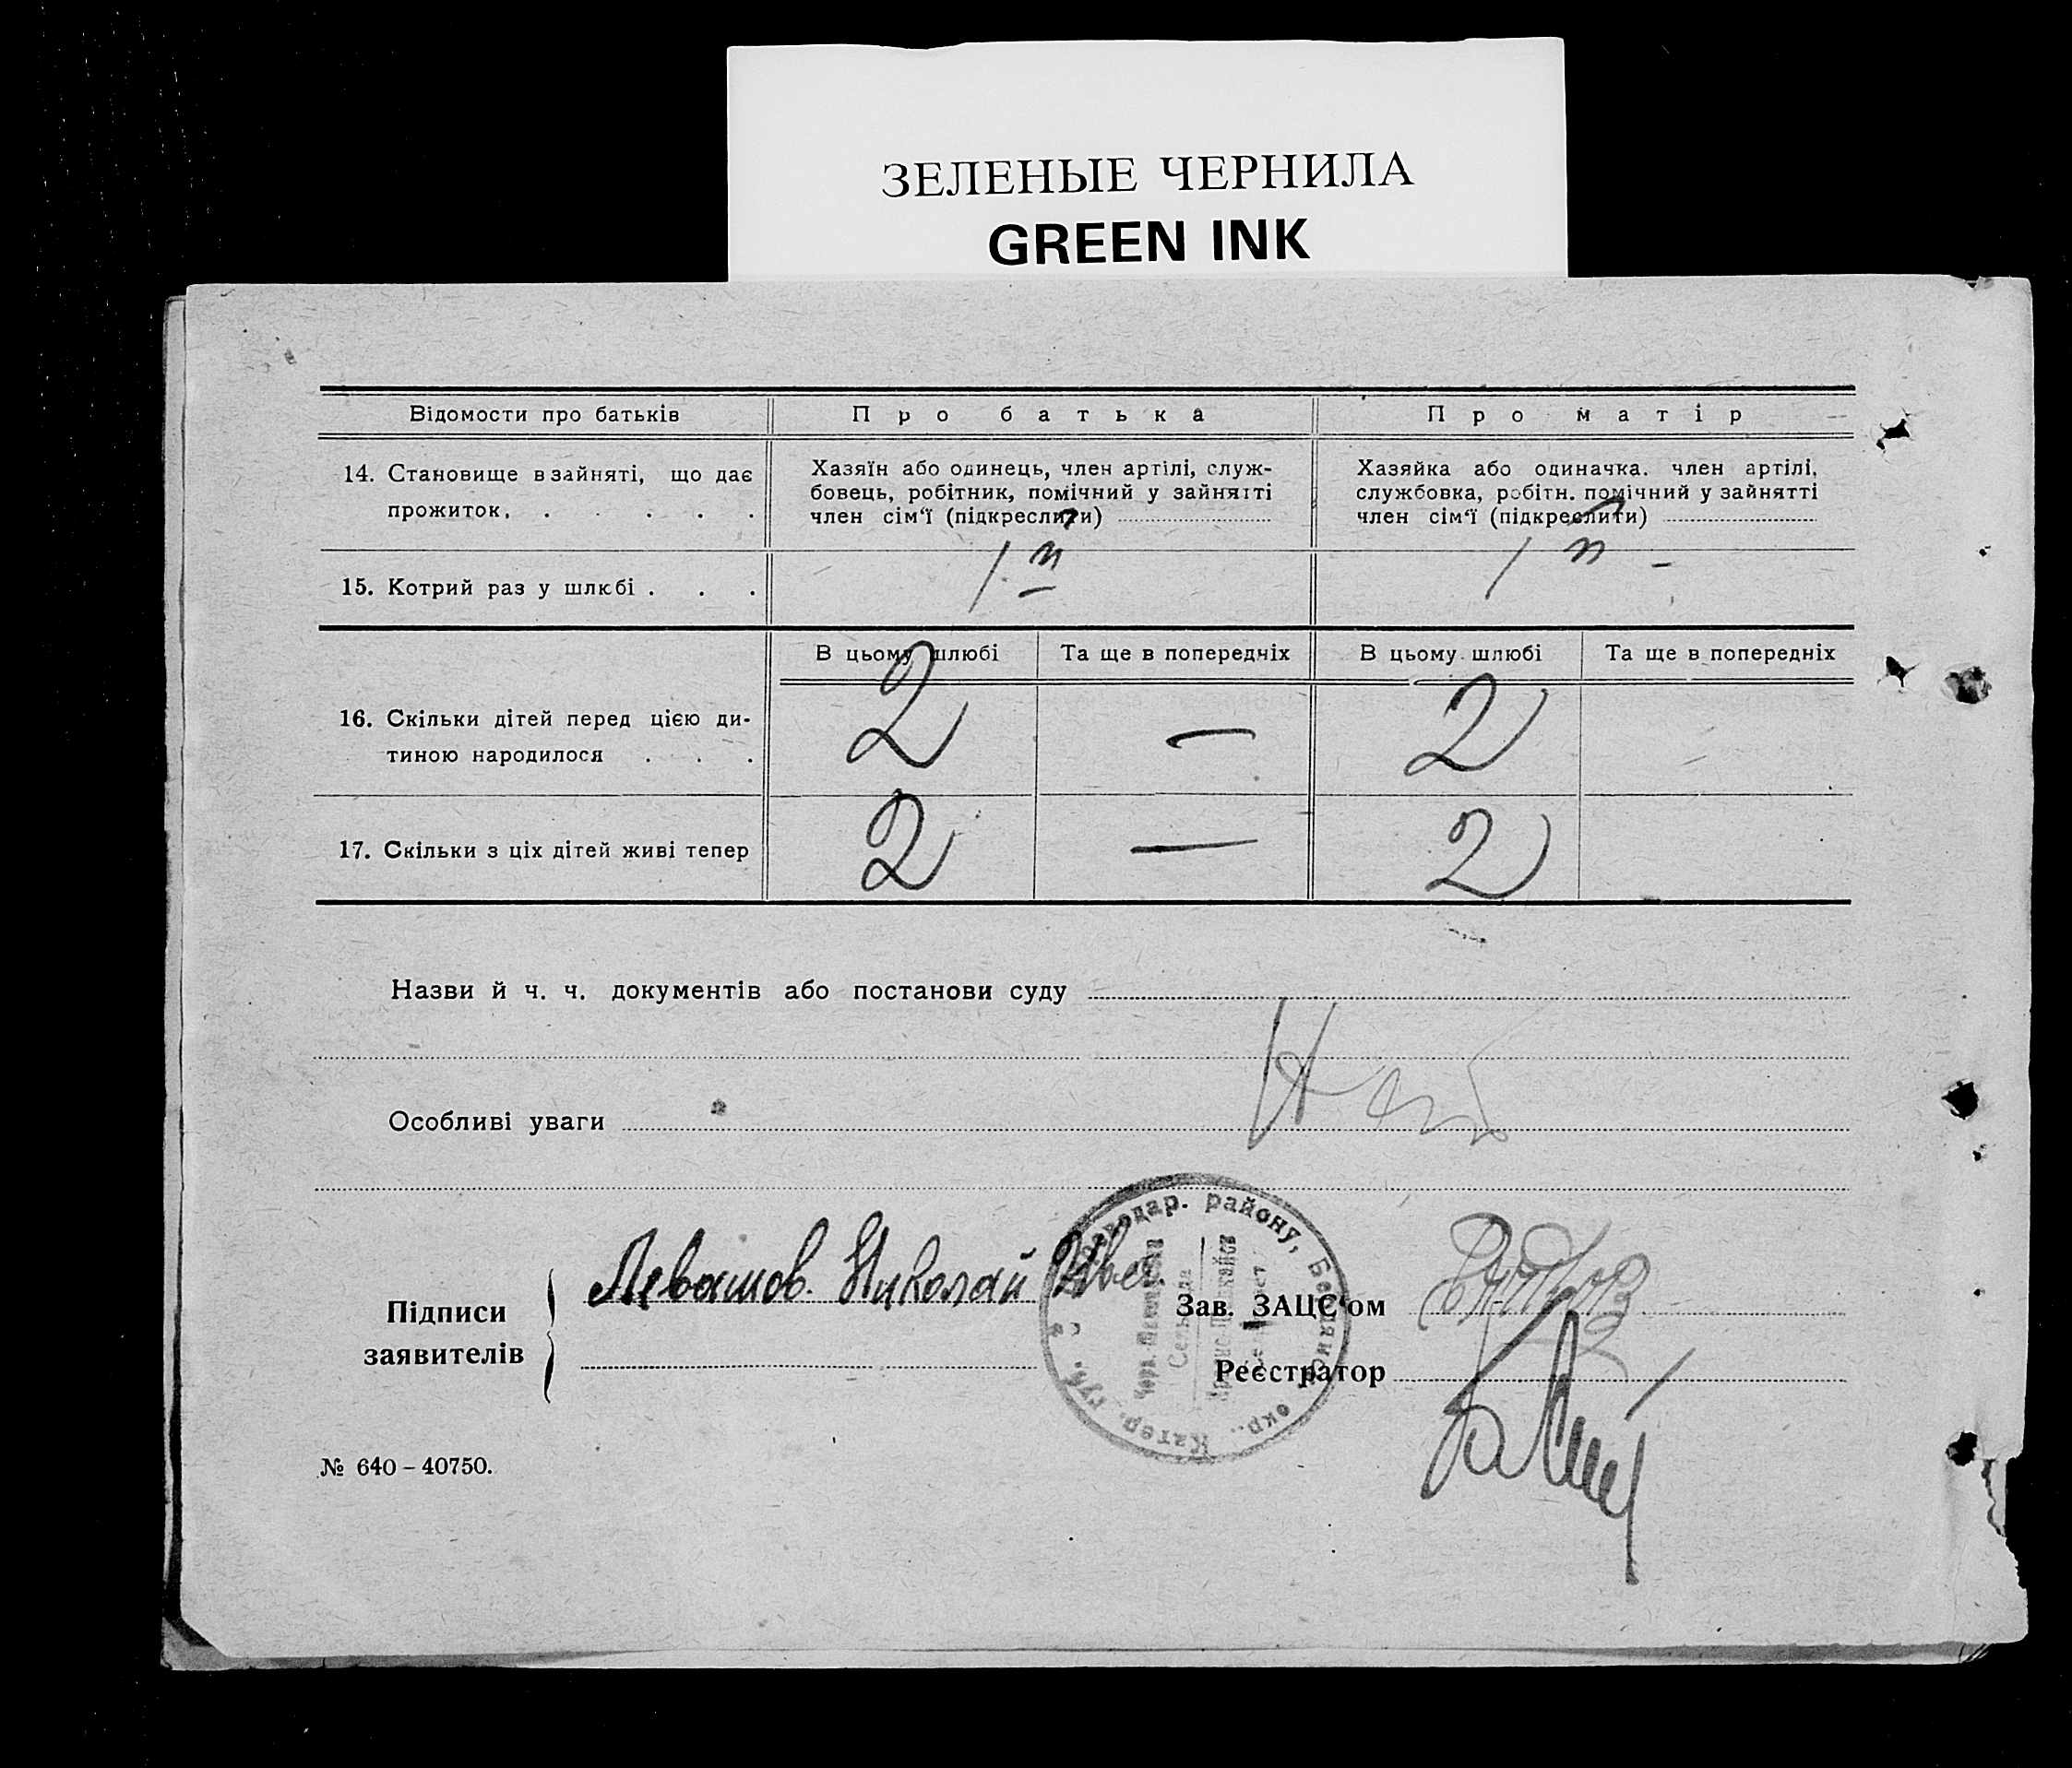 ЗЕЛЕНЫЕ ЧЕРНИЛА
GREEN INK
Відомости про батьків
Про батька
Про матір
14. Становище в зайняті, що дає
прожиток. . . . . .
Хазяїн або одинець, член артілі, служ-
бовець, робітник, помічний у зайнятті
член сім‘ї (підкреслити)
Хазяйка або одиначка. член артілі,
службовка, робітн. помічний у зайнятті
член сім‘ї (підкреслити)
15. Котрий раз у шлюбі . . .
1 й
1 й -
В цьому шлюбі
Та ще в попередніх
В цьому шлюбі
Та ще в попередніх
16. Скільки дітей перед цією ди-
тиною народилося . . .
2
—
2
17. Скільки з ціх дітей живі тепер
2
—
2
Назви й ч. ч. документів або постанови суду
Особливі уваги
Підписи
заявителів
Левашов Николай
Зав. ЗАЦС‘ом
Реєстратор
району,
окр.,
Катер. губ.
Сельрада
№ 640 – 40750.